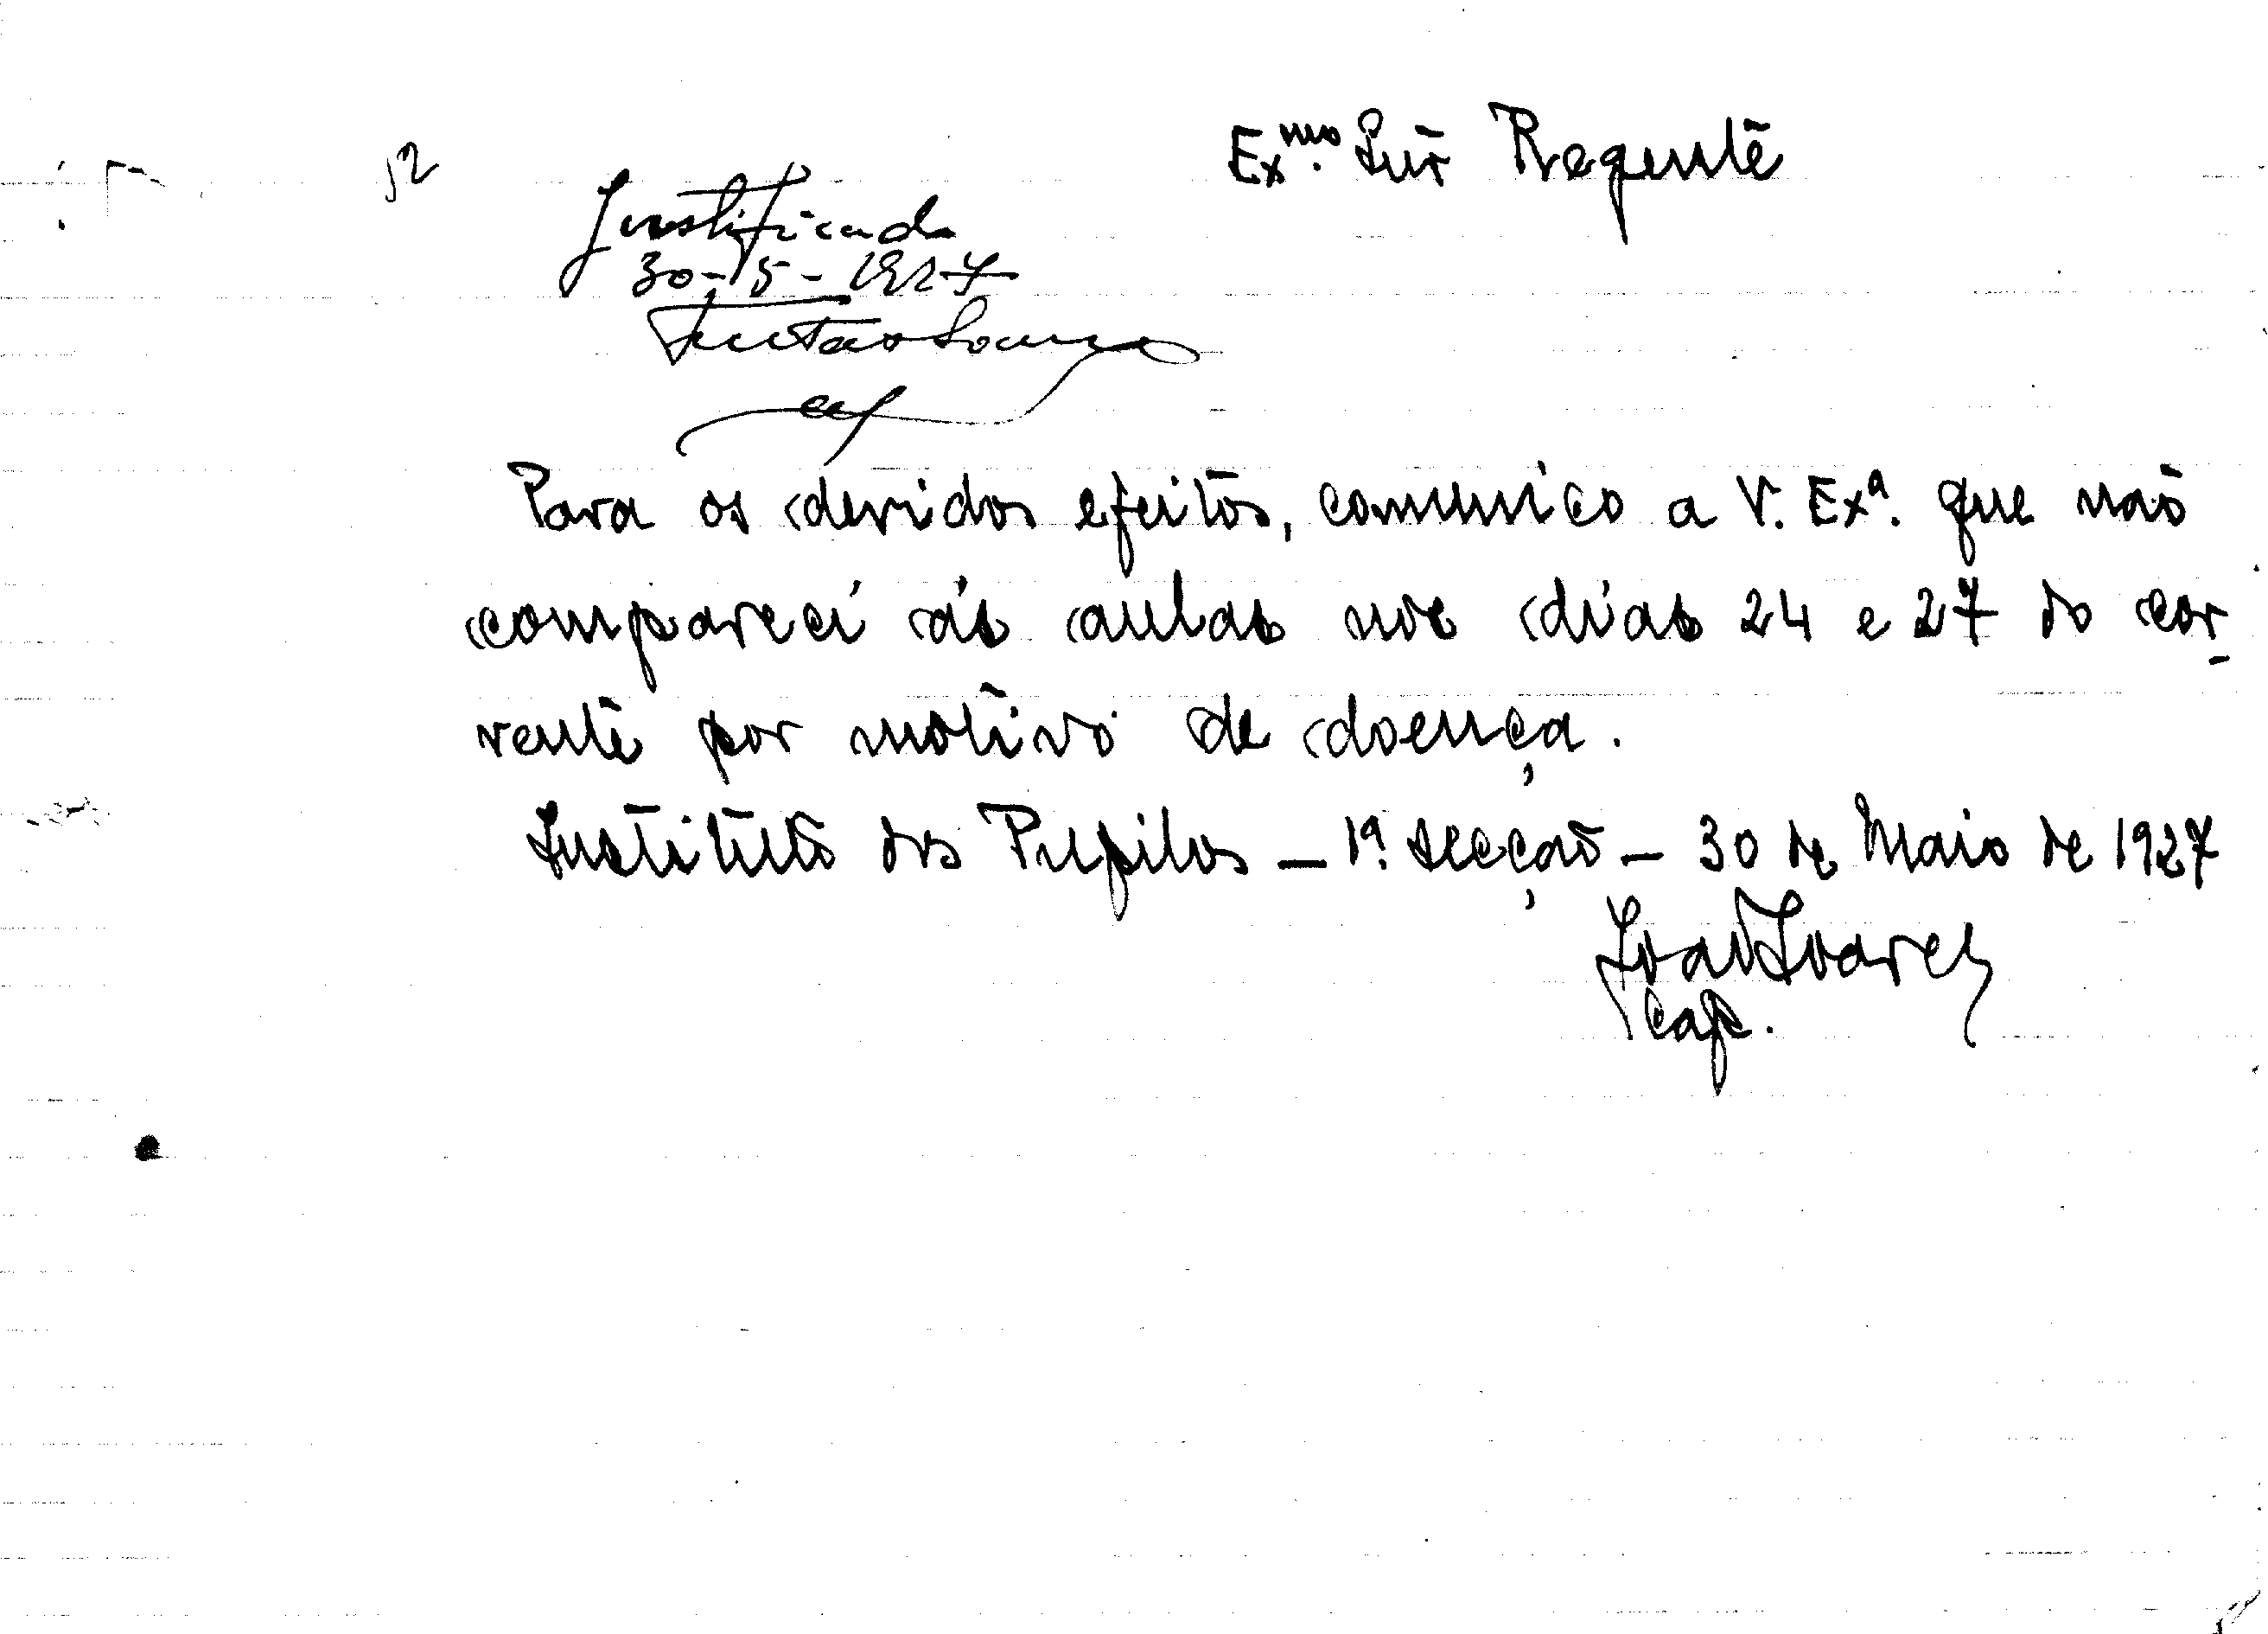 Ex.mo Snr Regente
52
Justificada
30-5-1927
Para os devidos efeitos, comunico a V. Exª. que não
comparecí ás aulas nos dias 24 e 27 do cor-
rente por motivo de doença.
Instituto dos Pupilos — 1ª. Secção — 30 de Maio de 1927
João Soares
Cap.